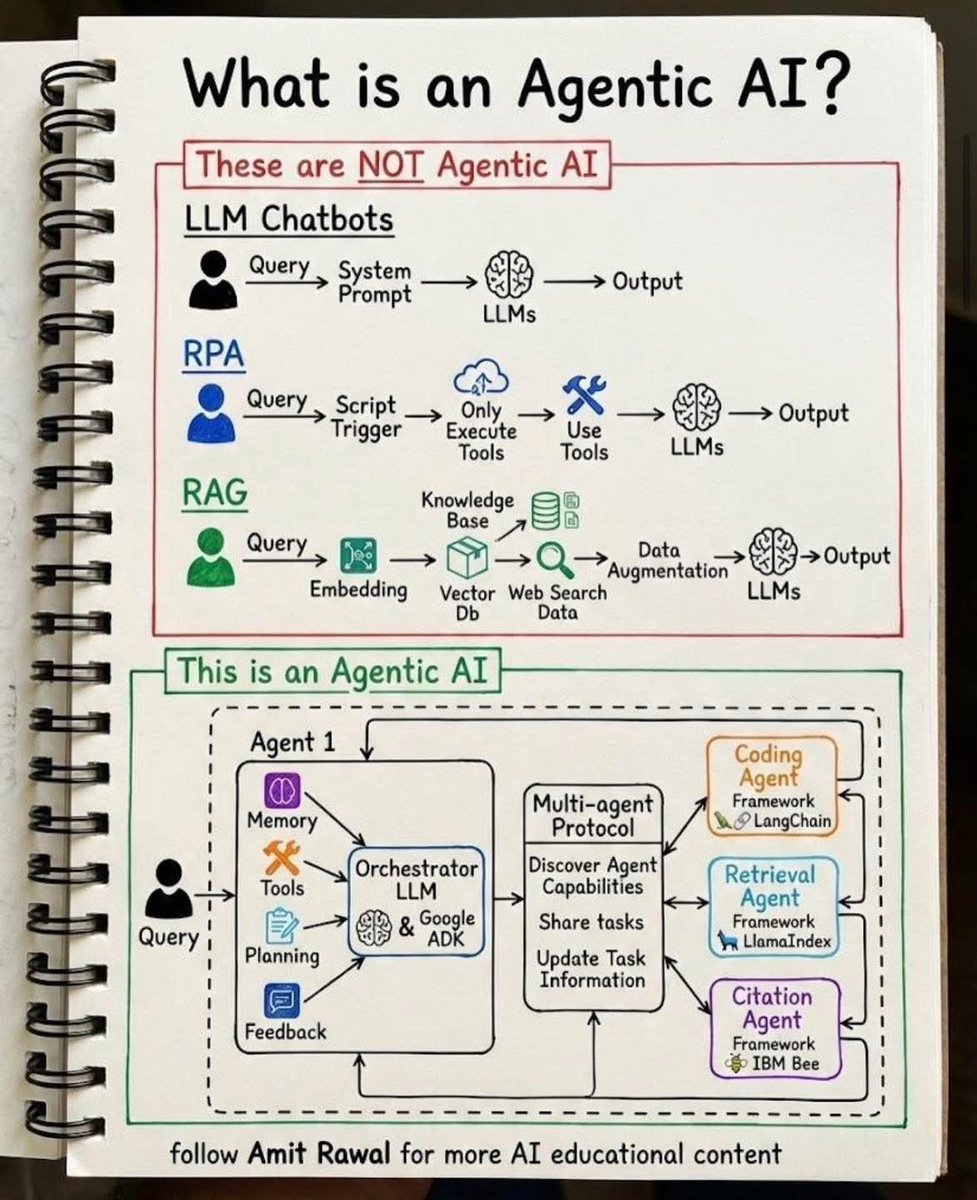 What is an Agentic AI?
These are NOT Agentic AI
LLM Chatbots
Query
System
Prompt
LLMs
Output
RPA
Query
Script
Trigger
Only
Execute
Tools
Use
Tools
LLMs
Output
RAG
Query
Embedding
Knowledge
Base
Vector
Db
Web Search
Data
Data
Augmentation
LLMs
Output
This is an Agentic AI
Query
Agent 1
Memory
Tools
Planning
Feedback
Orchestrator
LLM
& Google
ADK
Multi-agent
Protocol
Discover Agent
Capabilities
Share tasks
Update Task
Information
Coding
Agent
Framework
LangChain
Retrieval
Agent
Framework
LlamaIndex
Citation
Agent
Framework
IBM Bee
follow Amit Rawal for more AI educational content